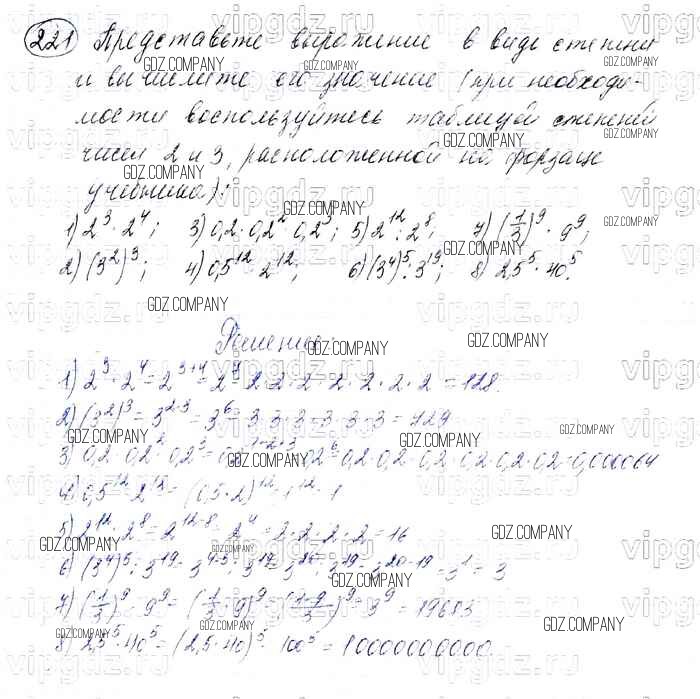 221 Представьте выражение в виде степени
и вычислите его значение (при необходи-
мости воспользуйтесь таблицей степеней
чисел 2 и 3, расположенной на форзаце
учебника):
1) 2³ · 2⁴; 3) 0,2 · 0,2² · 0,2³; 5) 2¹² : 2⁸; 7) (1/3)⁹ · 9⁹;
2) (3²)³; 4) 0,5¹² · 2¹²; 6) (3⁴)⁵ : 3¹⁹; 8) 2,5⁵ · 40⁵.
Решение:
1) 2³ · 2⁴ = 2³⁺⁴ = 2⁷ = 2 · 2 · 2 · 2 · 2 · 2 · 2 = 128.
2) (3²)³ = 3²·³ = 3⁶ = 3 · 3 · 3 · 3 · 3 · 3 = 729
3) 0,2 · 0,2² · 0,2³ = 0,2⁶ = 0,2 · 0,2 · 0,2 · 0,2 · 0,2 · 0,2 = 0,000064
4) 0,5¹² · 2¹² = (0,5 · 2)¹² = 1¹² = 1
5) 2¹² : 2⁸ = 2¹²⁻⁸ = 2⁴ = 2 · 2 · 2 · 2 = 16
6) (3⁴)⁵ : 3¹⁹ = 3⁴·⁵ : 3¹⁹ = 3²⁰ : 3¹⁹ = 3²⁰⁻¹⁹ = 3¹ = 3
7) (1/3)⁹ · 9⁹ = (1/3 · 9)⁹ = (1·9/3)⁹ = 3⁹ = 19683
8) 2,5⁵ · 40⁵ = (2,5 · 40)⁵ = 100⁵ = 10000000000.
vipgdz.ru
GDZ.COMPANY